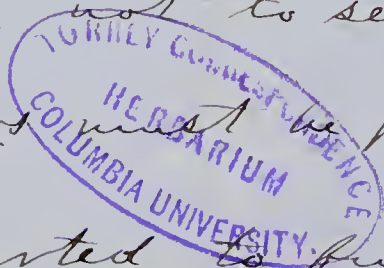 not to se
TORREY CORRESPONDENCE
HERBARIUM
COLUMBIA UNIVERSITY.
must be
rted to